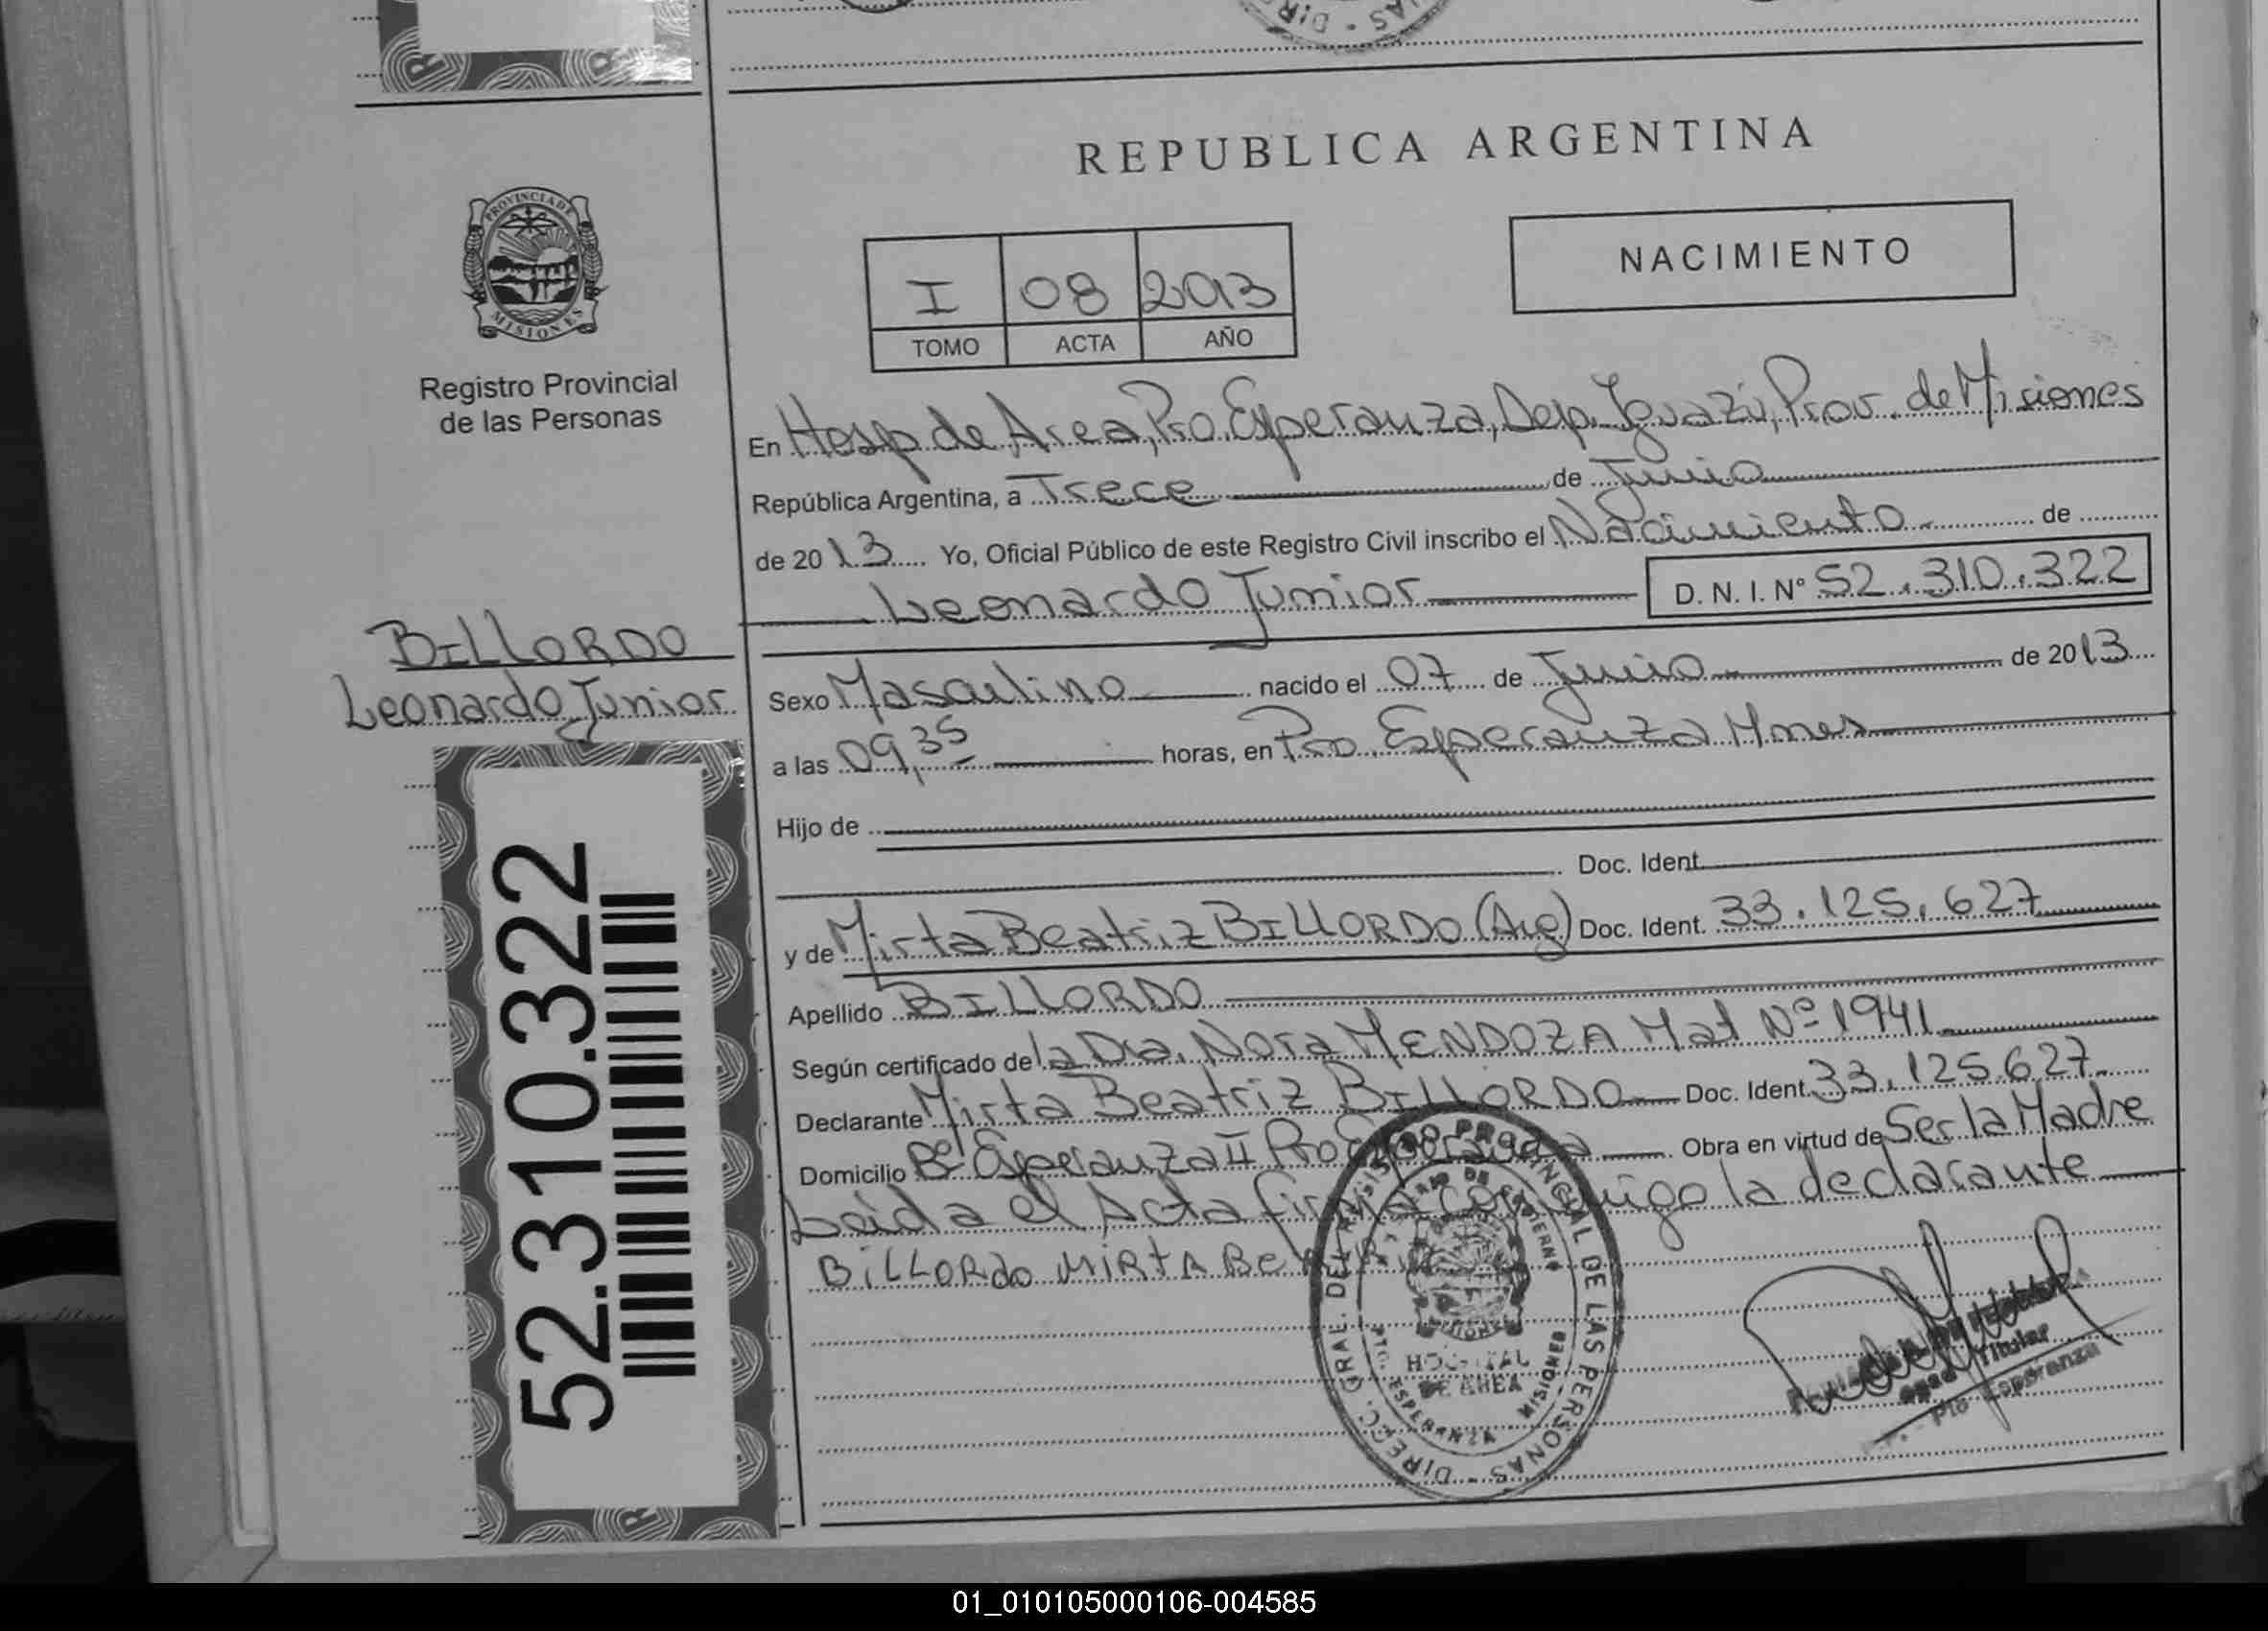 REPUBLICA ARGENTINA
PROVINCIA DE
MISIONES
Registro Provincial
de las Personas
NACIMIENTO
I 08 2013
TOMO ACTA AÑO
En Hosp de Area, Pto. Esperanza, Dep. Iguazú, Prov. de Misiones
República Argentina, a Trece de Junio
de 2013 Yo, Oficial Público de este Registro Civil inscribo el Nacimiento de
Leonardo Junior D. N. I. N° 52.310.322
BILLORDO
Leonardo Junior
Sexo Masculino nacido el 07 de Junio de 2013
a las 09,35 horas, en Pto. Esperanza Mnes
Hijo de
Doc. Ident.
y de Mirta Beatriz BILLORDO (Arg) Doc. Ident. 33.125.627
Apellido BILLORDO
Según certificado de la Dra. Nora MENDOZA Mat Nº 1941
Declarante Mirta Beatriz BILLORDO Doc. Ident. 33.125.627
Domicilio Bº Esperanza II Pto Esperanza Obra en virtud de Ser la Madre
Leida el Acta firma conmigo la declarante
BiLLORdo MIRTA BEATRIZ
52.310.322
DIREC. GRAL. DEL REGISTRO PROVINCIAL DE LAS PERSONAS
HOSPITAL
DE AREA
PTO. ESPERANZA MISIONES
Titular
Pto Esperanza
01_010105000106-004585